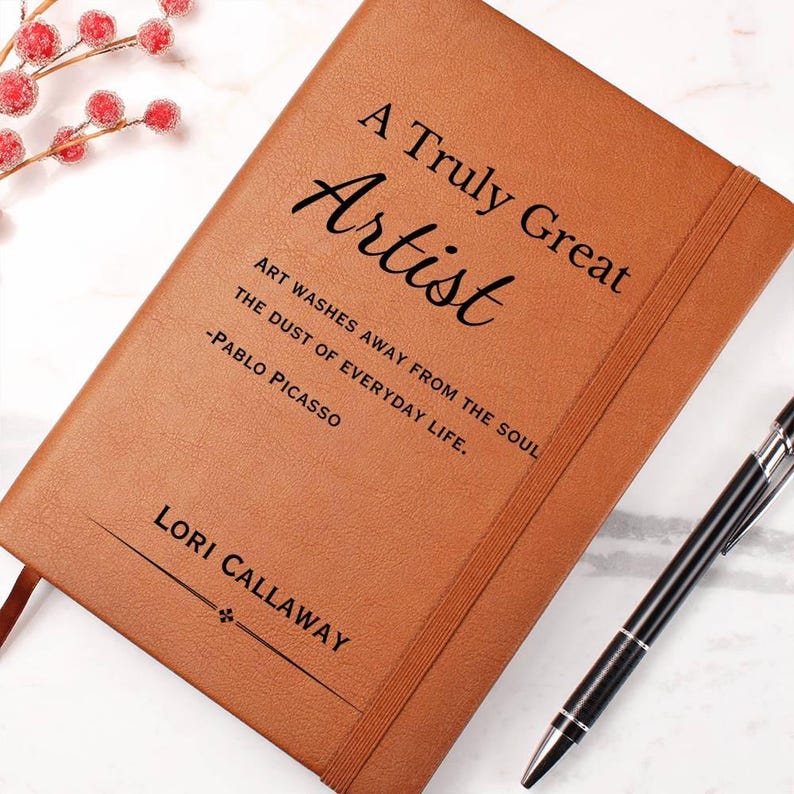 A Truly Great
Artist
ART WASHES AWAY FROM THE SOUL
THE DUST OF EVERYDAY LIFE.
-PABLO PICASSO
LORI CALLAWAY